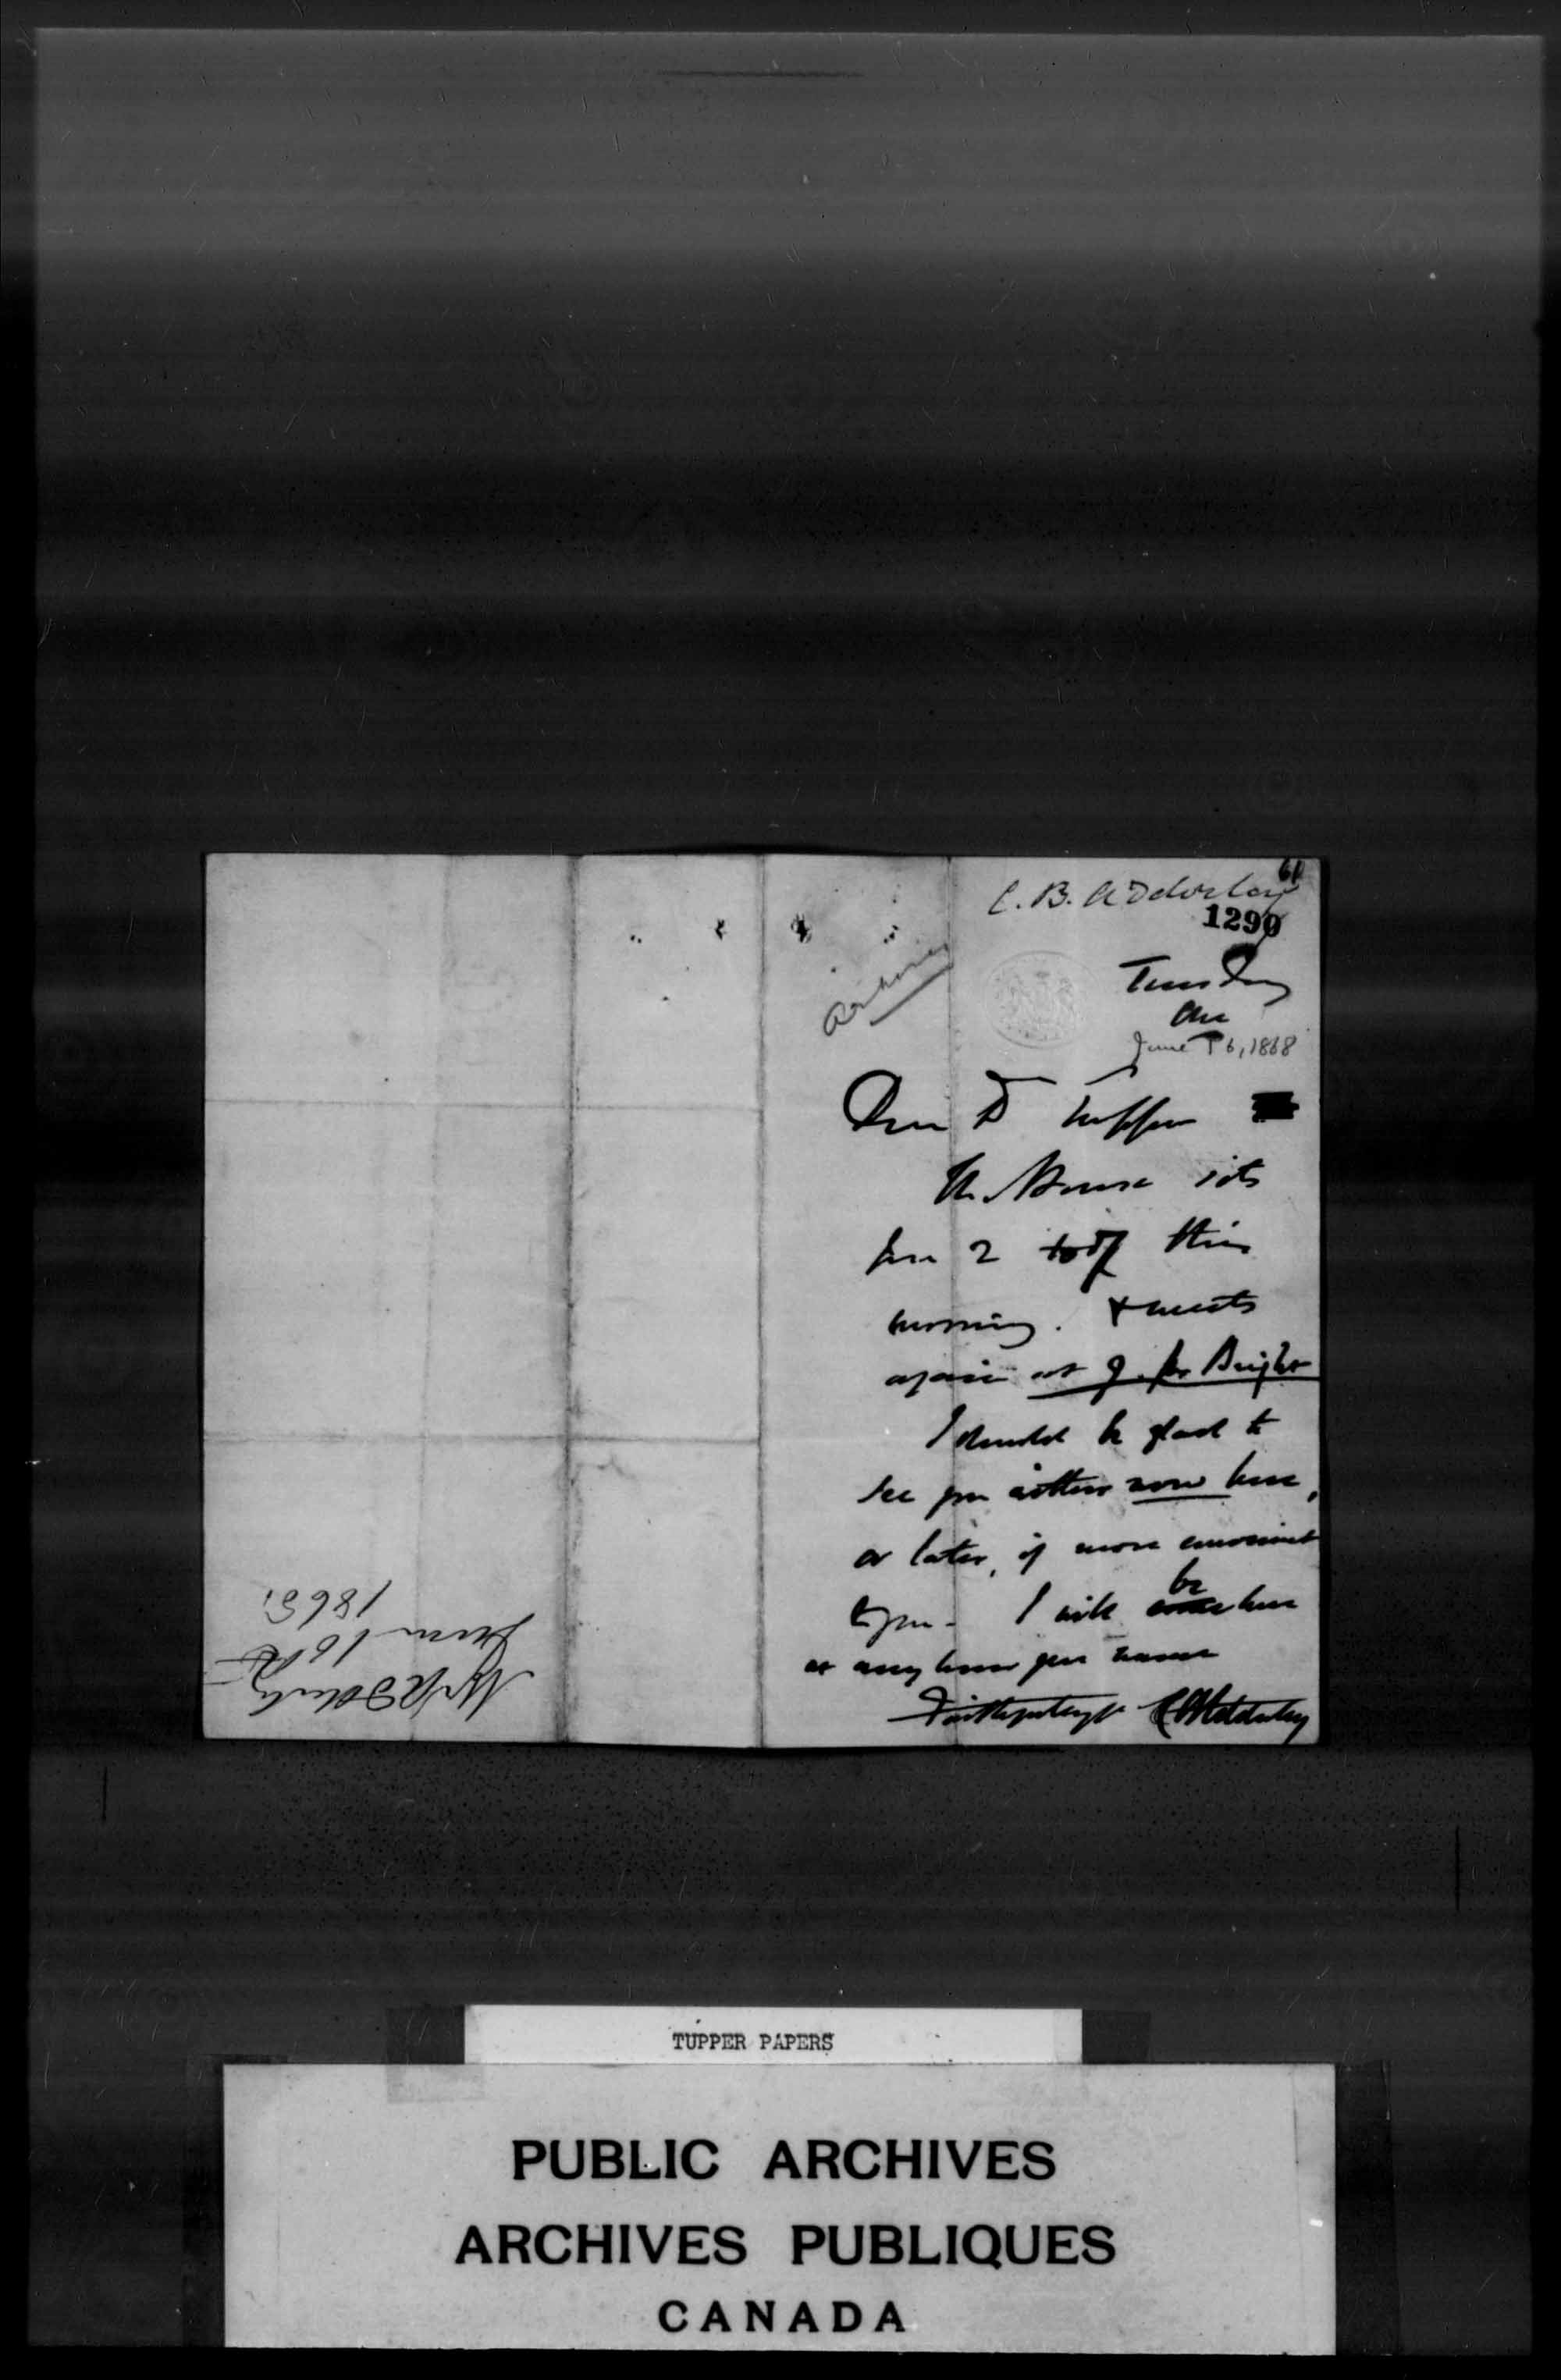 61
C. B. Adderley
1290
Tuesday
June 16, 1868
Dear Dr Tupper
The House sits
from 2 to 7 this
morning. & meets
again at 9. for Bright
I should be glad to
see you either now here,
or later, if more convenient
to you. I will be here
at any hour you name
Faithfully yrs CB Adderley
Mr Adderley
June 16th
1868.
TUPPER PAPERS
PUBLIC ARCHIVES
ARCHIVES PUBLIQUES
CANADA